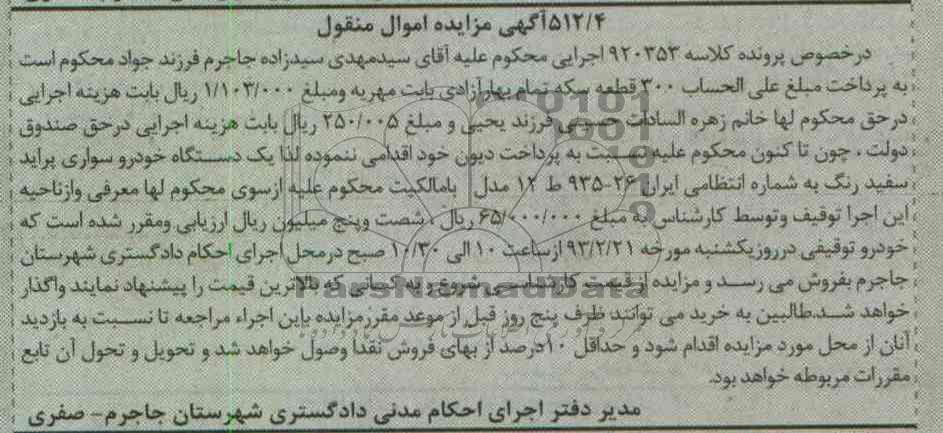 ۵۱۲/۴آگهی مزایده اموال منقول
درخصوص پرونده کلاسه ۹۲۰۳۵۳ اجرایی محکوم علیه آقای سیدمهدی سیدزاده جاجرم فرزند جواد محکوم است
به پرداخت مبلغ علی الحساب ۳۰۰ قطعه سکه تمام بهارآزادی بابت مهریه ومبلغ ۱/۱۰۳/۰۰۰ ریال بابت هزینه اجرایی
درحق محکوم لها خانم زهره السادات حسینی فرزند یحیی و مبلغ ۲۵۰/۰۰۵ ریال بابت هزینه اجرایی درحق صندوق
دولت ، چون تا کنون محکوم علیه نسبت به پرداخت دیون خود اقدامی ننموده لذا یک دستگاه خودرو سواری پراید
سفید رنگ به شماره انتظامی ایران ۲۶-۹۳۵ ط ۱۲ مدل بامالکیت محکوم علیه ازسوی محکوم لها معرفی وازناحیه
این اجرا توقیف وتوسط کارشناس به مبلغ ۶۵/۰۰۰/۰۰۰ ریال ، شصت وپنج میلیون ریال ارزیابی ومقرر شده است که
خودرو توقیفی درروزیکشنبه مورخه ۹۳/۲/۲۱ ازساعت ۱۰ الی ۱۰/۳۰ صبح درمحل اجرای احکام دادگستری شهرستان
جاجرم بفروش می رسد و مزایده ازقیمت کارشناسی شروع و به کسانی که بالاترین قیمت را پیشنهاد نمایند واگذار
خواهد شد.طالبین به خرید می توانند ظرف پنج روز قبل از موعد مقررمزایده باین اجراء مراجعه تا نسبت به بازدید
آنان از محل مورد مزایده اقدام شود و حداقل ۱۰درصد از بهای فروش نقدا وصول خواهد شد و تحویل و تحول آن تابع
مقررات مربوطه خواهد بود.
مدیر دفتر اجرای احکام مدنی دادگستری شهرستان جاجرم- صفری
ParsNamadData